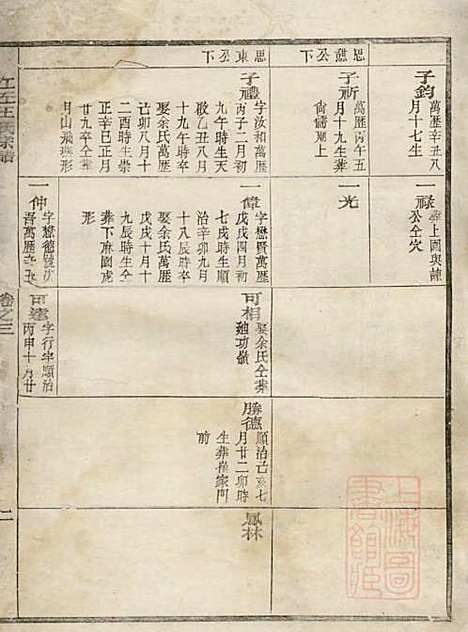 思慤公下
思東公下
子鈞
萬歷辛丑八
月十七生
子祈
萬歷丙午五
月十九生葬
尙儒廟上
子禮
字汝和萬歷
丙子二月初
九午時生天
啟乙丑八月
十九午時卒
娶余氏萬歷
己卯八月十
二酉時生崇
正辛巳正月
廿九卒仝葬
月山飛燕形
一祿
葬上園與諫
公仝穴
一光
一偉
字懋賢萬歷
戊戌四月初
七戌時生順
治辛卯九月
十八辰時卒
娶余氏萬歷
戊戌十月十
九辰時生仝
葬下麻園虎
形
一仲
字懋德
萬歷辛丑
可相
娶余氏仝葬
功嶺
可達
字行宇順治
丙申十月廿
勝德
順治己亥七
月廿二卯時
生葬崔家門
前
鳳林
江左王氏宗譜
卷之三
二
上海圖
書館臧